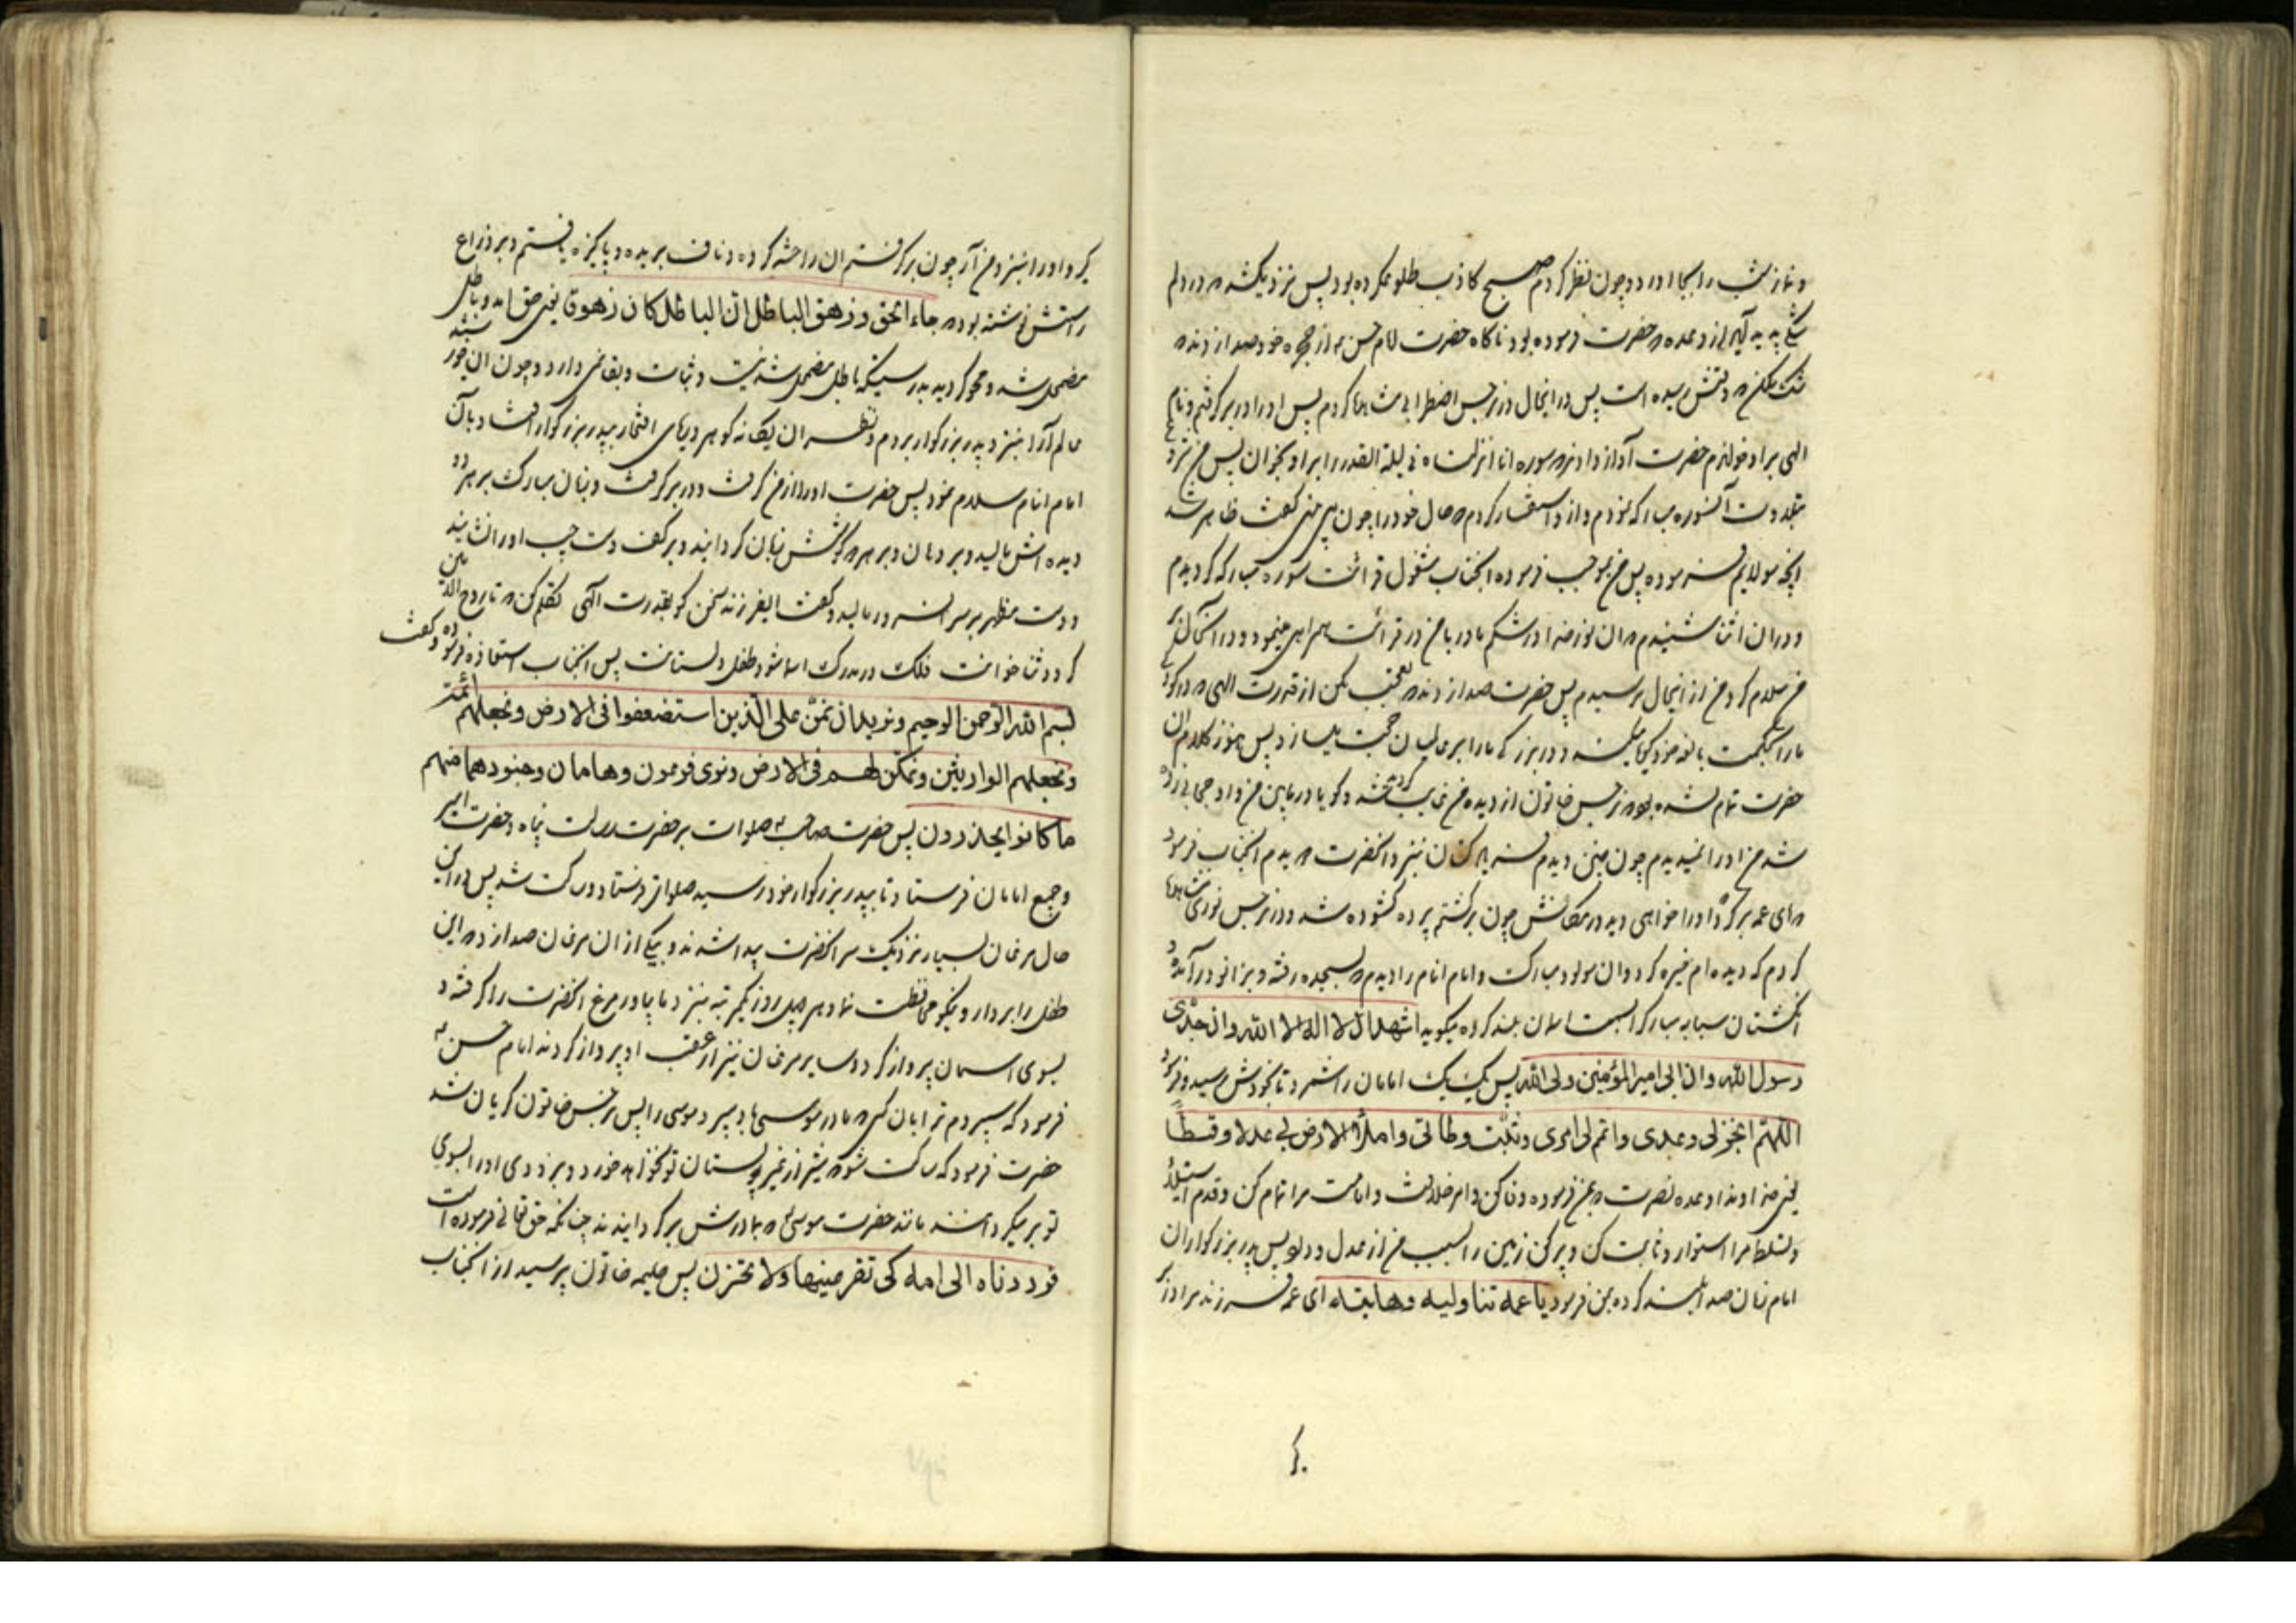 و نماز شب را بجا آورد و چون نظر کردم صبح کاذب طلوع کرده بود پس نزدیک شد که در دلم
شکی پدید آید از وعده که حضرت فرموده بود ناکاه حضرت امام حسن ع از حجره خود صدا زدند که
شک مکن که وقتش رسیده است پس در اینحال در نرجس اضطرابی مشاهده کردم پس او را در بر کرفتم و نام
الهی بر او خواندم حضرت آواز دادند که سوره انا انزلناه فی لیلة القدر را بر او بخوان پس من شروع
بتلاوت آنسوره مبارکه نمودم و از او استفسار کردم که حال خود را چون می بینی کفت ظاهر شد
آنچه مولایم فرموده پس من بموجب فرموده آنجناب مشغول قرائت سوره مبارکه کردیدم
و در آن اثنا شنیدم که آن نور خدا در شکم مادر با من در قرائت همراهی مینمود و در آنحال بر
من سلام کرد من از اینحال ترسیدم پس حضرت صدا زدند که تعجب مکن از قدرت الهی که در کودکی
ما را بحکمت کویا میکند و در بزرکی ما را بر عالمیان حجت میسازد پس هنوز کلام آن
حضرت تمام نشده بود که نرجس خاتون از دیده من غایب کردیده شد و کویا در مابین من و او حجابی زده
شد من او را نمیدیدم چون چنین دیدم فریاد کنان بنزد آنحضرت دویدم آنجناب فرمود
که ای عمه برکرد که او را خواهی دید در مکانش چون برکشتم پرده کشوده شد و در نرجس نوری مشاهده
کردم که دیده ام خیره کرد و آن مولود مبارک و امام انام را دیدم که بسجده رفته و بزانو درآمده
انکشتان سبابه مبارک را بسمت آسمان بلند کرده میکوید اشهد ان لا اله الا الله و ان جدی
رسول الله و ان ابی امیر المؤمنین ولی الله پس یک یک امامان را شمرد تا بخودش رسید و فرمود
اللهم انجز لی وعدی و اتمم لی امری و ثبت وطأتی و املأ الارض بی عدلا و قسطا
یعنی خداوندا وعده نصرت که بمن فرموده وفا کن و امر خلافت و امامت مرا تمام کن و قدم استیلا
و تسلط مرا استوار و ثابت کن و پر کن زمین را بسبب من از عدل و داد پس پدر بزرکواران
امام زمان صدا بلند کرده بمن فرمود یا عمه تناولیه و هاتیه ای عمه فرزند مرا در بر
کیر و او را بنزد من آر چون بر کرفتم آن را ختنه کرده و ناف بریده و پاکیزه یافتم و بر ذراع
راستش نوشته بود که جاء الحق و زهق الباطل ان الباطل کان زهوقا یعنی حق آمد و باطل
مضمحل شد و محو کردید بدرستیکه باطل مضمحل شدنیست و ثبات و بقائی ندارد و چون آن
عالم آرا بنزد پدر بزرکوار بردم و نظر آن یکدانه کوهر دریای افتخار بپدر بزرکوار افتاد بآن
امام انام سلام نمود پس حضرت او را از من کرفت و در بر کرفت و زبان مبارک بر هر دو
دیده اش مالید و بر دهان و بر هر دو کوشش زبان کردانید و بر کف دست چپ او را نشانید
و دست مطهر بر سر آن سرور مالید و کفت ای فرزند سخن کو بقدرت الهی تکلم کن که تا روح الامین
کردد ثنا خوانت فلک پس آنجناب استعاذه فرموده و کفت
بسم الله الرحمن الرحیم و نرید ان نمن علی الذین استضعفوا فی الارض و نجعلهم ائمة
و نجعلهم الوارثین و نمکن لهم فی الارض و نری فرعون و هامان و جنودهما منهم
ما کانوا یحذرون پس حضرت صاحب ع صلوات بر حضرت رسالت پناه و حضرت امیر
و جمیع امامان فرستاد تا بپدر بزرکوار خود رسید صلوات فرستاد و ساکت شد پس در این
حال مرغان بسیار نزدیک سر آنحضرت پیدا شدند و بیکی از آن مرغان صدا زد که این
طفل را بردار و نیکو محافظت نما و هر چهل روز یکمرتبه بنزد ما بیاور مرغ آنحضرت را کرفته و
بسوی اسمان پرواز کرد و سایر مرغان نیز از عقب او پرواز کردند امام حسن ع
فرمود که سپردم ترا بآن کسی که مادر موسی باو سپرد موسی را پس نرجس خاتون کریان شد
حضرت فرمود که ساکت شو که شیر از غیر پستان تو نخواهد خورد و بزودی او را بسوی
تو بر میکردانند مانند حضرت موسی که بمادرش بر کردانیدند چنانکه حق تعالی فرموده است
فرددناه الی امه کی تقر عینها و لا تحزن پس حلیمه خاتون پرسید از آنجناب